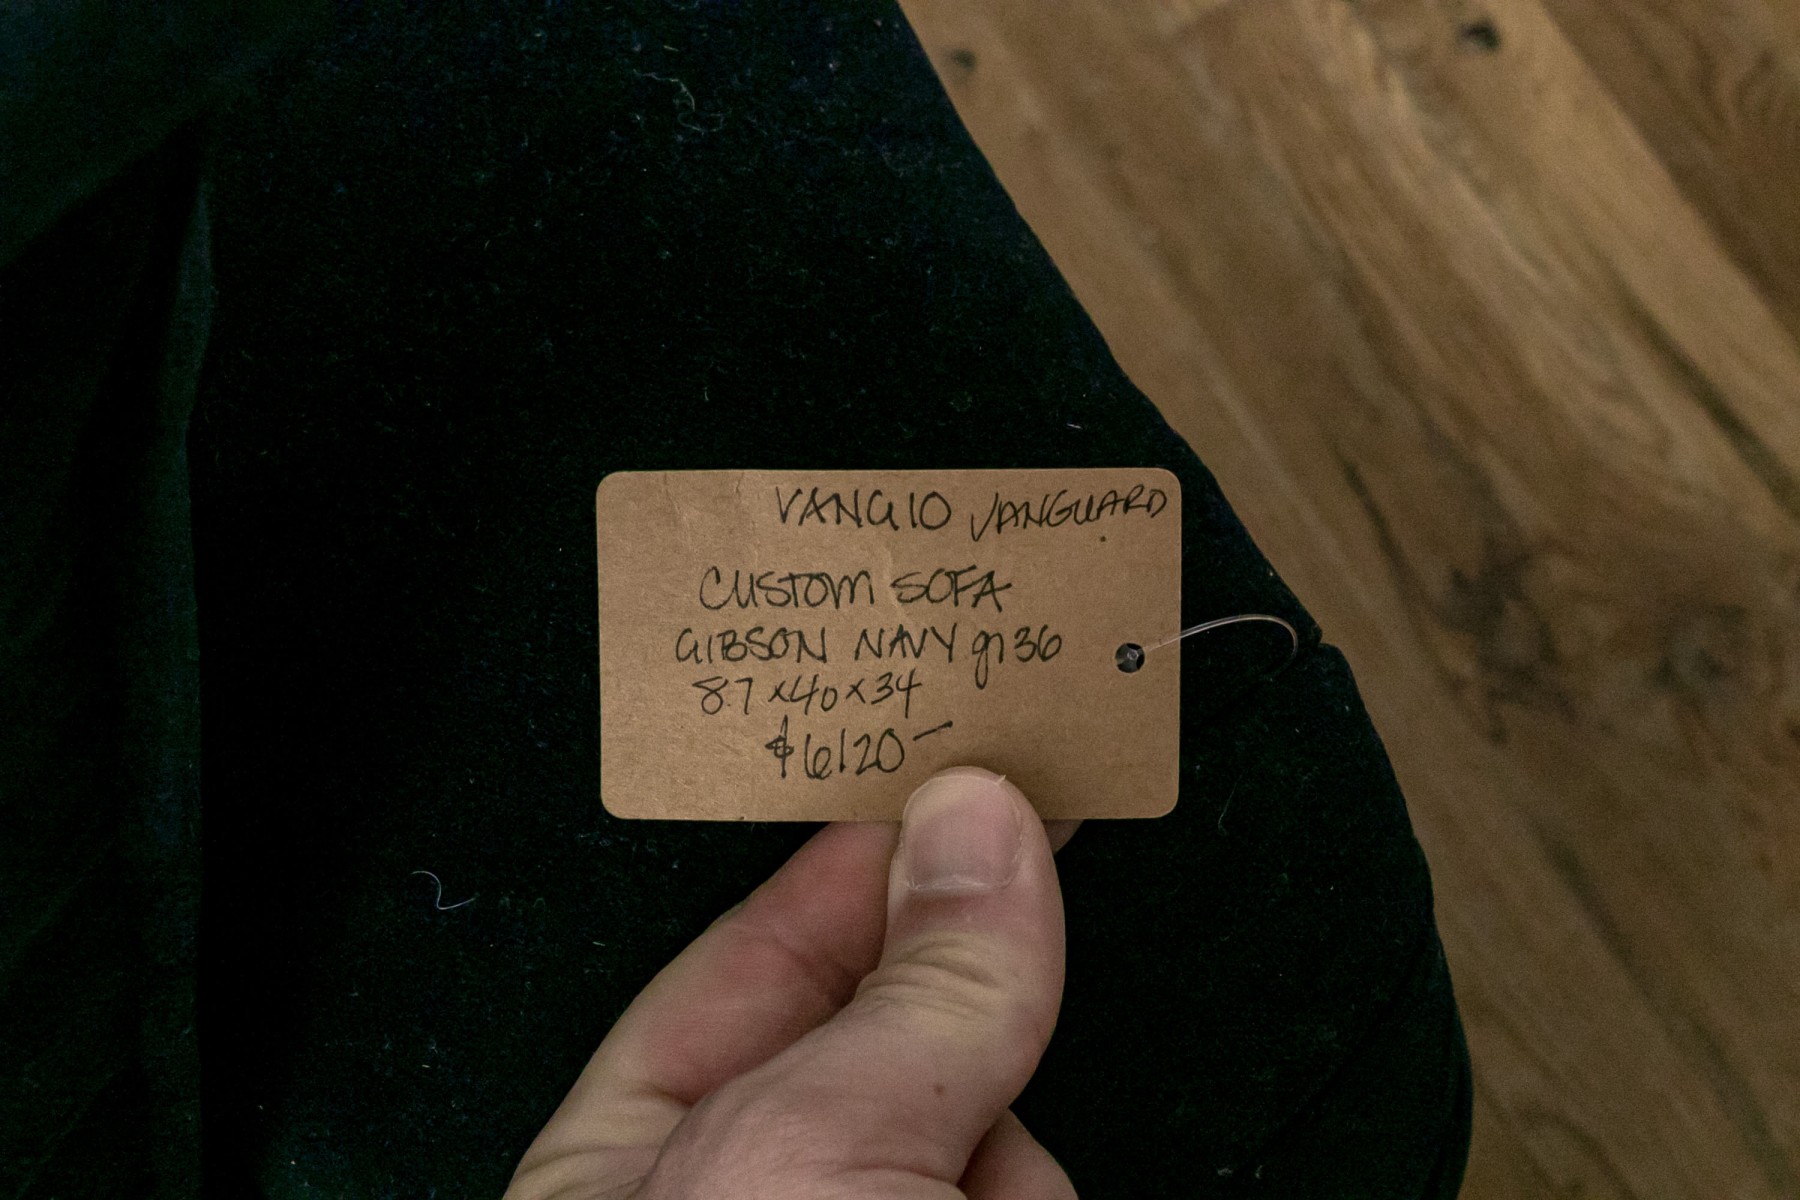 VANG10 VANGUARD
CUSTOM SOFA
GIBSON NAVY gr36
87x40x34
$6120–